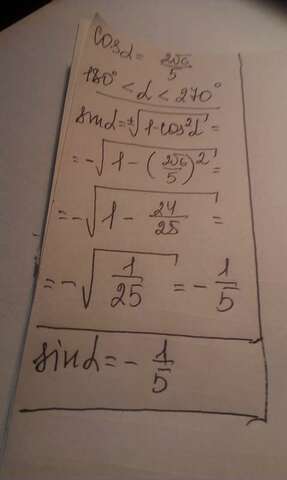 cosα = 2√6/5
180° < α < 270°
sinα = ±√(1-cos²α) =
= -√(1 - (2√6/5)²) =
= -√(1 - 24/25) =
= -√(1/25) = - 1/5
sinα = - 1/5